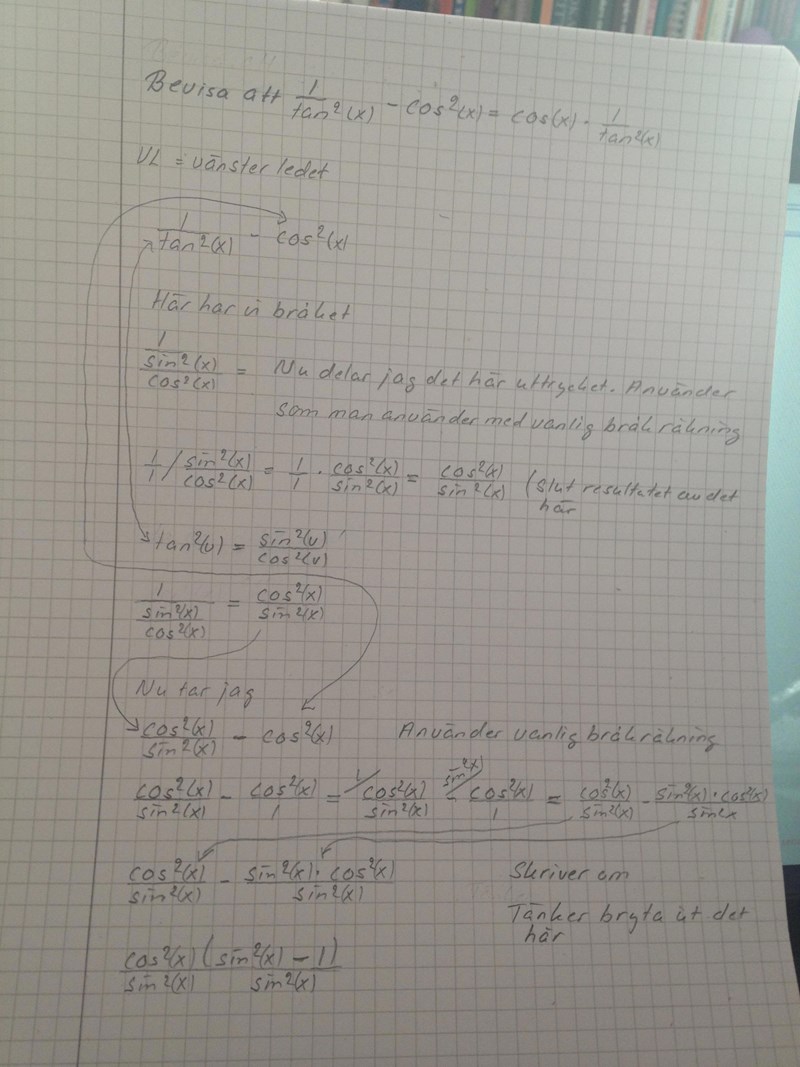 Bevisa att 1/tan²(x) - cos²(x) = cos(x) · 1/tan²(x)
VL = vänster ledet
1/tan²(x) - cos²(x)
Här har vi bråket
1/(sin²(x)/cos²(x)) = Nu delar jag det här uttrycket. Använder
som man använder med vanlig bråk räkning
1/1 / sin²(x)/cos²(x) = 1/1 · cos²(x)/sin²(x) = cos²(x)/sin²(x) (Slut resultatet av det
här
tan²(v) = sin²(v)/cos²(v)
1/(sin²(x)/cos²(x)) = cos²(x)/sin²(x)
Nu tar jag
cos²(x)/sin²(x) - cos²(x) Använder vanlig bråkräkning
cos²(x)/sin²(x) - cos²(x)/1 = 1/cos²(x)/sin²(x) - sin²(x)/cos²(x)/1 = cos²(x)/sin²(x) - sin²(x)·cos²(x)/sin²x
cos²(x)/sin²(x) - sin²(x)·cos²(x)/sin²(x) Skriver om
Tänker bryta ut det
här
cos²(x)/sin²(x) (sin²(x) - 1)/sin²(x)